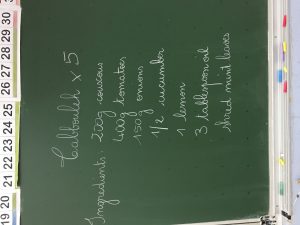 Tabbouleh x 5
Ingredients:
200g couscous
400g tomatoes
150g onions
1/2 cucumber
1 lemon
3 tablespoon oil
shred mint leaves
19 20 21 22 23 24 25
26 27 28 29 30